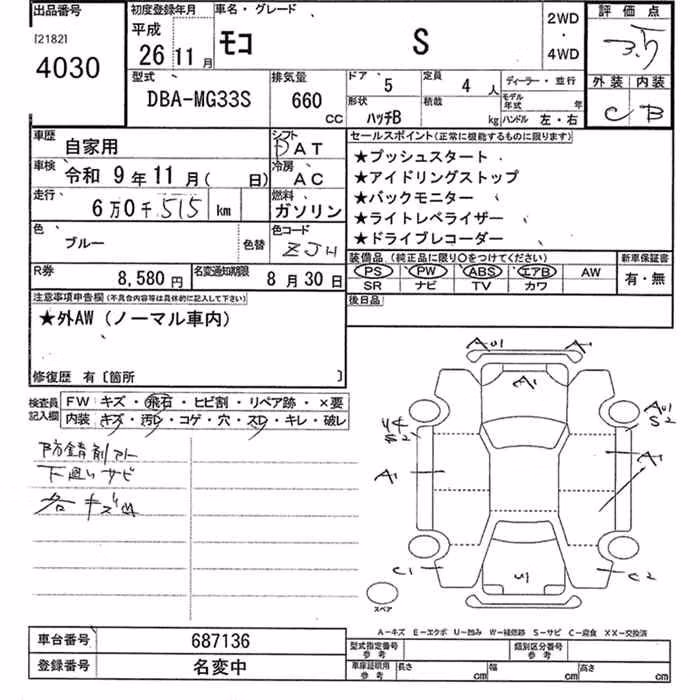 出品番号
[2182]
4030
初度登録年月
平成
26 11月
車名・グレード
モコ S
2WD
・
4WD
評価点
3.5
外装 内装
C B
型式
DBA-MG33S
排気量
660
CC
ドア 5
形状 ハッチB
定員 4人
積載 kg
ディーラー・並行
モデル年式 年
ハンドル 左・右
車歴 自家用
シフト
DAT
車検 令和 9年11月( 日)
冷房
AC
走行 6万0千515 km
燃料
ガソリン
色 ブルー 色替
色コード
ZJH
R券 8,580円
名変通知期限 8月30日
セールスポイント(正常に機能するものに限ります)
★プッシュスタート
★アイドリングストップ
★バックモニター
★ライトレベライザー
★ドライブレコーダー
装備品(純正品に限り○をつけてください)
PS PW ABS エアB AW
SR ナビ TV カワ
新車保証書
有・無
後日品
注意事項申告欄(不具合内容等は具体的に記入して下さい)
★外AW(ノーマル車内)
修復歴 有〔箇所 〕
検査員記入欄
FW キズ・飛石・ヒビ割・リペア跡・×要
内装 キズ・汚レ・コゲ・穴・スレ・キレ・破レ
防錆剤アト
下廻りサビ
各キズ凹
AU1 A1
A1
AU1
S2
U4
S2
A1
A1
C1
U1
C2
スペア
A-キズ E-エクボ U-凹み W-補修跡 S-サビ C-腐食 XX-交換済
車台番号 687136
登録番号 名変中
型式指定番号
参考
類別区分番号
参考
車庫証明用
参考
長さ cm
幅 cm
高さ cm